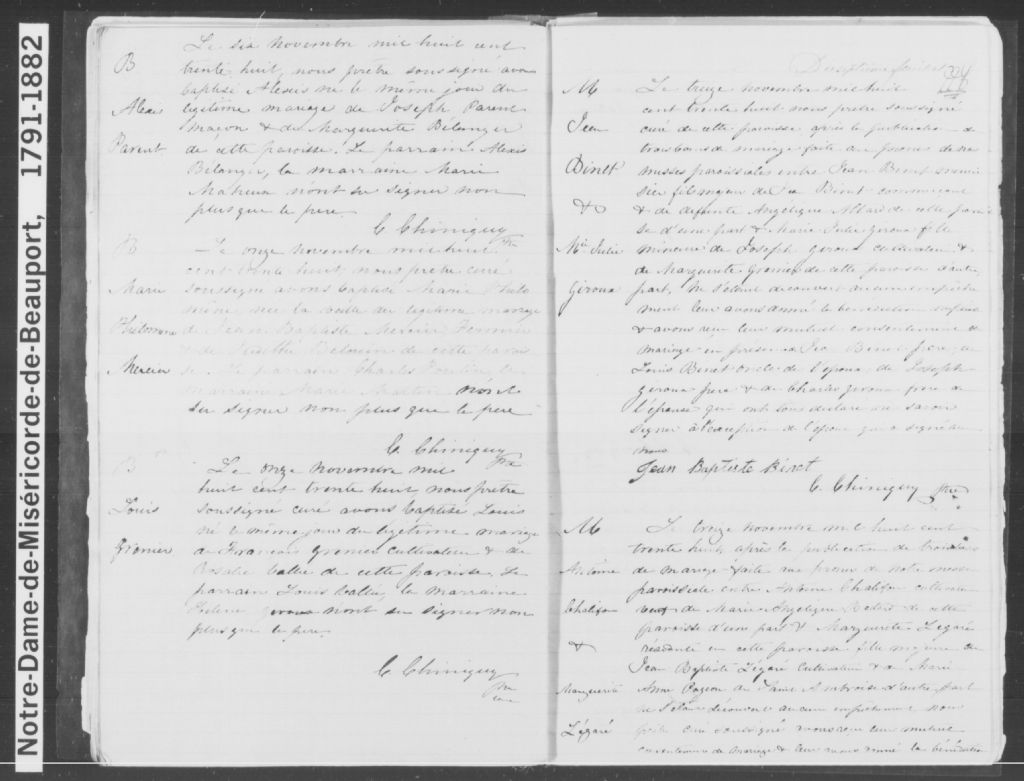 Notre-Dame-de-Miséricorde-de-Beauport, 1791-1882
B
Alexis
Parent
Le six novembre mil huit cent
trente huit, nous prêtre soussigné avons
baptisé Alexis né le même jour du
légitime mariage de Joseph Parent
maçon & de Marguerite Bélanger
de cette paroisse. Le parrain Alexis
Bélanger, la marraine Marie
Maheux n'ont su signer non
plus que le pere
C. Chiniquy
Ptre
B
Marie
Philomene
Mercier
Le onze novembre mil huit
cent trente huit, nous pretre curé
soussigné avons baptisé Marie Philo
mene, née la veille du légitime mariage
de Jean Baptiste Mercier
& de de cette parois
se. Le parrain Charles la
marraine Marie n'ont
su signer non plus que le pere
C. Chiniquy
Ptre
B
Louis
Grenier
Le onze novembre mil
huit cent trente huit, nous prêtre
soussigné curé avons baptisé Louis
né le même jour du légitime mariage
de François Grenier cultivateur & de
Rosalie Vallée de cette paroisse. Le
parrain Louis Vallée, la marraine
Giroux n'ont su signer non
plus que le pere
C. Chiniquy
Ptre
curé
334
M
Jean
Binet
&
Mie Julie
Giroux
Le treize novembre mil huit
cent trente huit nous prêtre soussigné
curé de cette paroisse après la publication de
trois bans de mariage faite au prone de nos
messes paroissiales entre Jean Binet menui
sier fils majeur de Binet
& de défunte Angélique Allard de cette parois
se d'une part & Marie Julie Giroux fille
mineure de Joseph Giroux cultivateur &
de Marguerite Grenier de cette paroisse d'autre
part, ne s'étant découvert aucun empêche
ment leur avons donné la bénédiction nuptiale
& avons reçu leur mutuel consentement de
mariage en présence de Jean Binet père, de
Louis Binet oncle de l'époux, de Joseph
Giroux père & de Charles Giroux frère de
l'épouse qui ont tous déclaré ne savoir
signer à l'exception de l'époux qui a signé avec
nous
Jean Baptiste Binet
C. Chiniquy Ptre
M
Antoine
Chalifou
&
Marguerite
Légaré
Le treize novembre mil huit cent
trente huit, après la publication de trois bans
de mariage faite au prone de notre messe
paroissiale entre Antoine Chalifou cultivateur
veuf de Marie Angélique de cette
paroisse d'une part & Marguerite Légaré
résidante en cette paroisse fille majeure de
Jean Baptiste Légaré cultivateur & de Marie
Anne Pageau de Saint Ambroise d'autre part
ne s'étant découvert aucun empêchement nous
prêtre curé soussigné avons reçu leur mutuel
consentement de mariage & leur avons donné la bénédiction